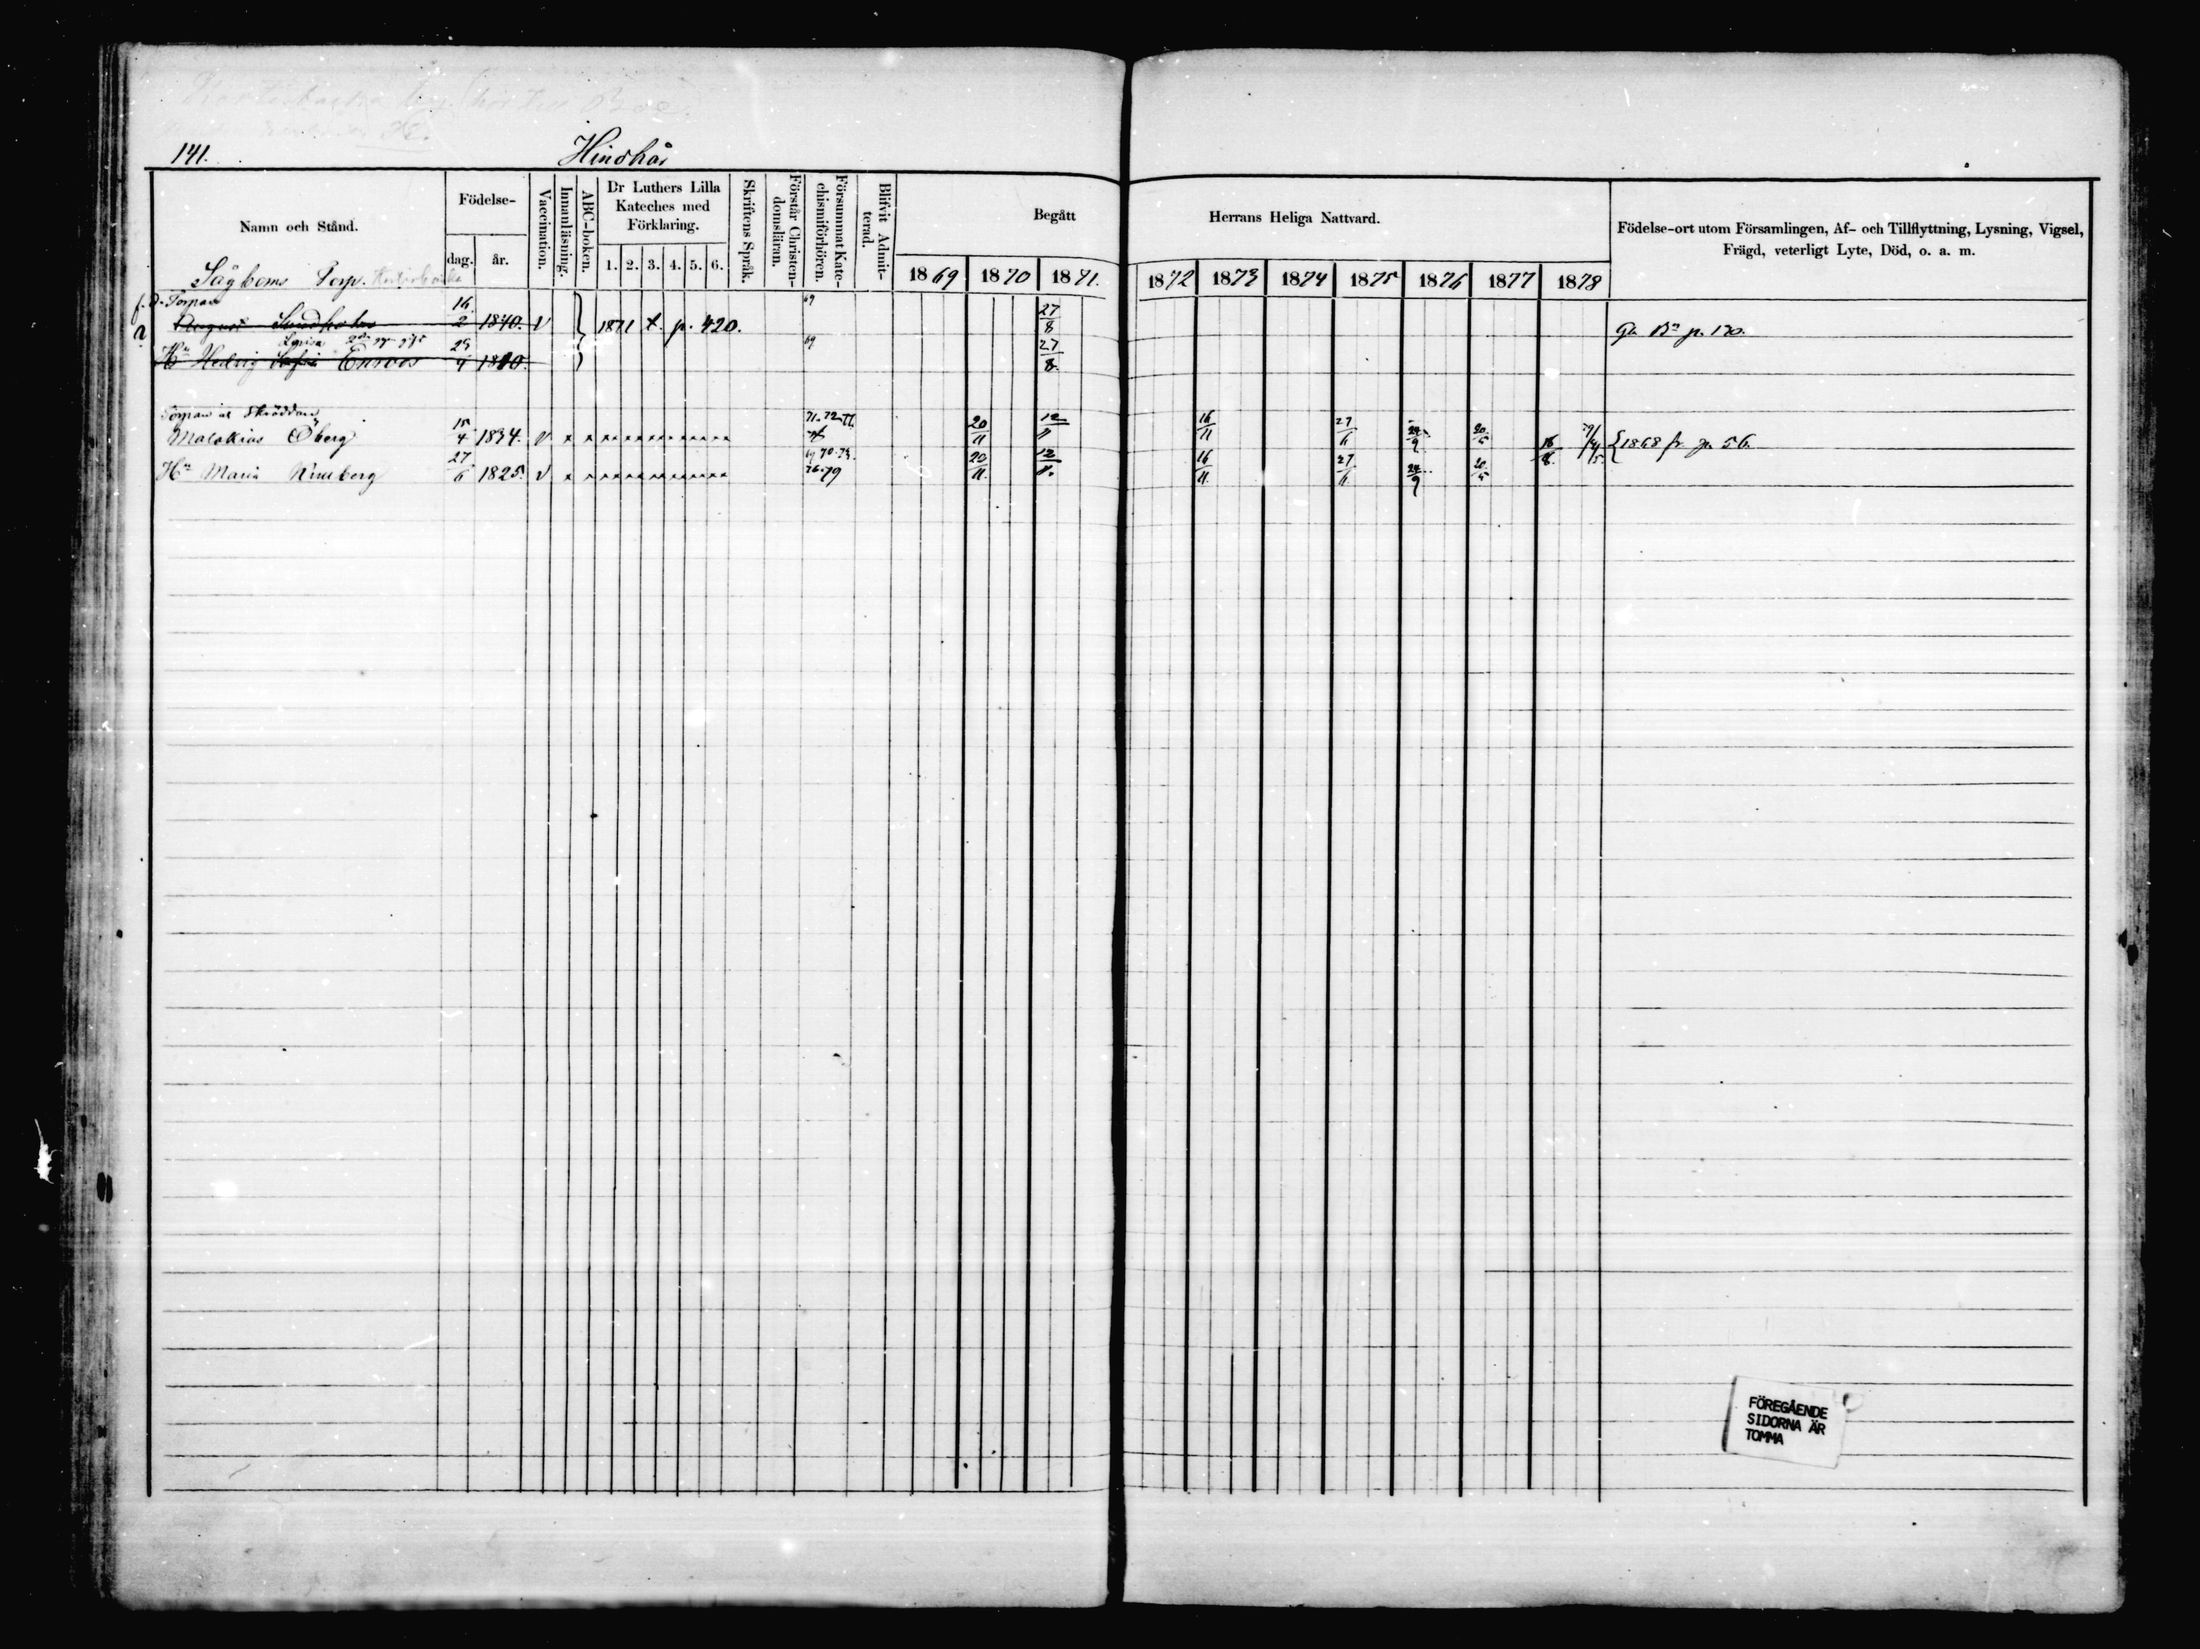 141.
Hindhår
Namn och Stånd.
Födelse-
dag.
år.
Vaccination.
Innanläsning.
ABC-boken.
Dr Luthers Lilla
Kateches med
Förklaring.
1. 2. 3. 4. 5. 6.
Skriftens Språk.
Förstår Christen-
domsläran.
Försummat Kate-
chismiförhören.
Blifvit Admit-
terad.
Begått
Herrans Heliga Nattvard.
1869 1870 1871. 1872 1873 1874 1875 1876 1877 1878
Födelse-ort utom Församlingen, Af- och Tillflyttning, Lysning, Vigsel,
Frägd, veterligt Lyte, Död, o. a. m.
Sågboms Torp.
f. d. Torpare
August Lindholm 16/2 1840. v 1871 t. p. 420. 69 27/8 p. 130.
Lovisa
Hu Hedvig Sofia 29/4 69 27/8
Torpare
Malakias Öberg 15/4 1834. v 71. 72. 20/11 12/11 16/11 27/11 20/5 1868 fr. p. 56.
Hu Maria 27/6 1825. v 69 70. 76. 79 20/11 12/11 16/11 27/11 20/5 16/6
FÖREGÅENDE
SIDORNA ÄR
TOMMA